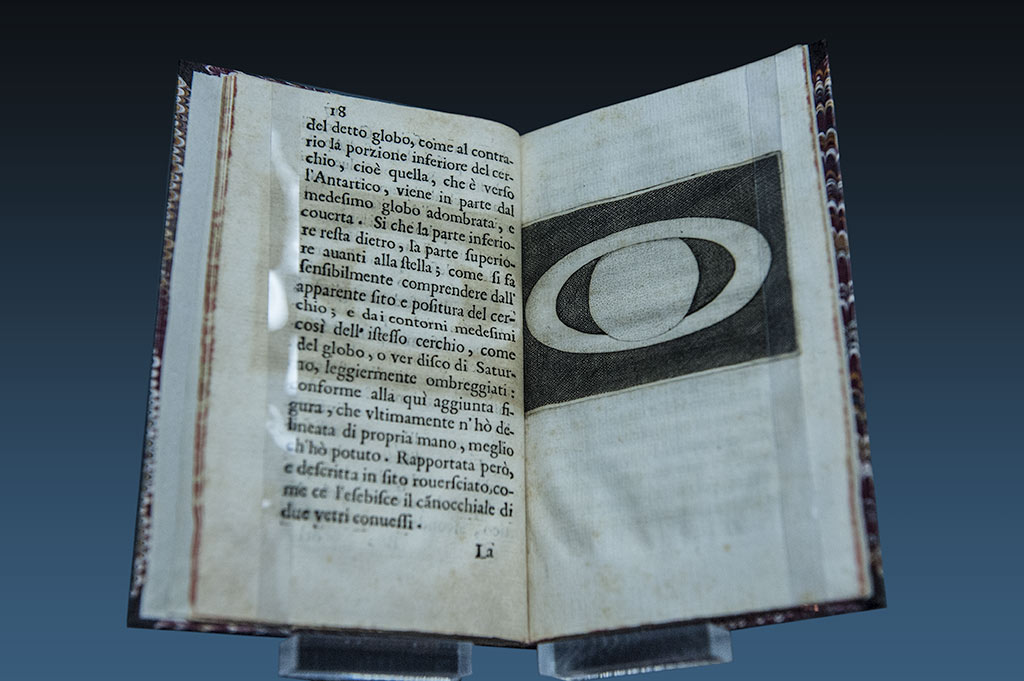 18
del detto globo, come al contra-
rio la porzione inferiore del cer-
chio, cioè quella, che è verſo
l'Antartico, viene in parte dal
medeſimo globo adombrata, e
couerta. Si che la parte inferio-
re reſta dietro, la parte ſuperio-
re auanti alla ſtella; come ſi fa
ſenſibilmente comprendere dall'
apparente ſito e poſitura del cer-
chio; e dai contorni medeſimi
così dell'iſteſſo cerchio, come
del globo, o ver diſco di Satur-
no, leggiermente ombreggiati:
conforme alla quì aggiunta fi-
gura, che vltimamente n'hò de-
lineata di propria mano, meglio
ch'hò potuto. Rapportata però,
e deſcritta in ſito rouerſciato, co-
me ce l'eſebiſce il cãnocchiale di
due vetri conueſſi.
Là